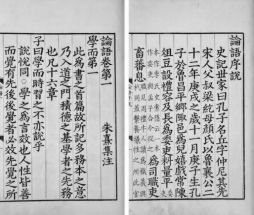 論語序說
史記世家曰孔子名丘字仲尼其先
宋人父叔梁紇母顏氏以魯襄公二
十二年庚戌之歲十一月庚子生孔
子於魯昌平鄉陬邑為兒嬉戲常陳
俎豆設禮容及長為委吏料量平
為司職吏
畜蕃息
論語卷第一
朱熹集注
學而第一
此為書之首篇故所記多務本之意
乃入道之門積德之基學者之先務
也凡十六章
子曰學而時習之不亦說乎
說悅同○學之為言效也人性皆善
而覺有先後後覺者必效先覺之所